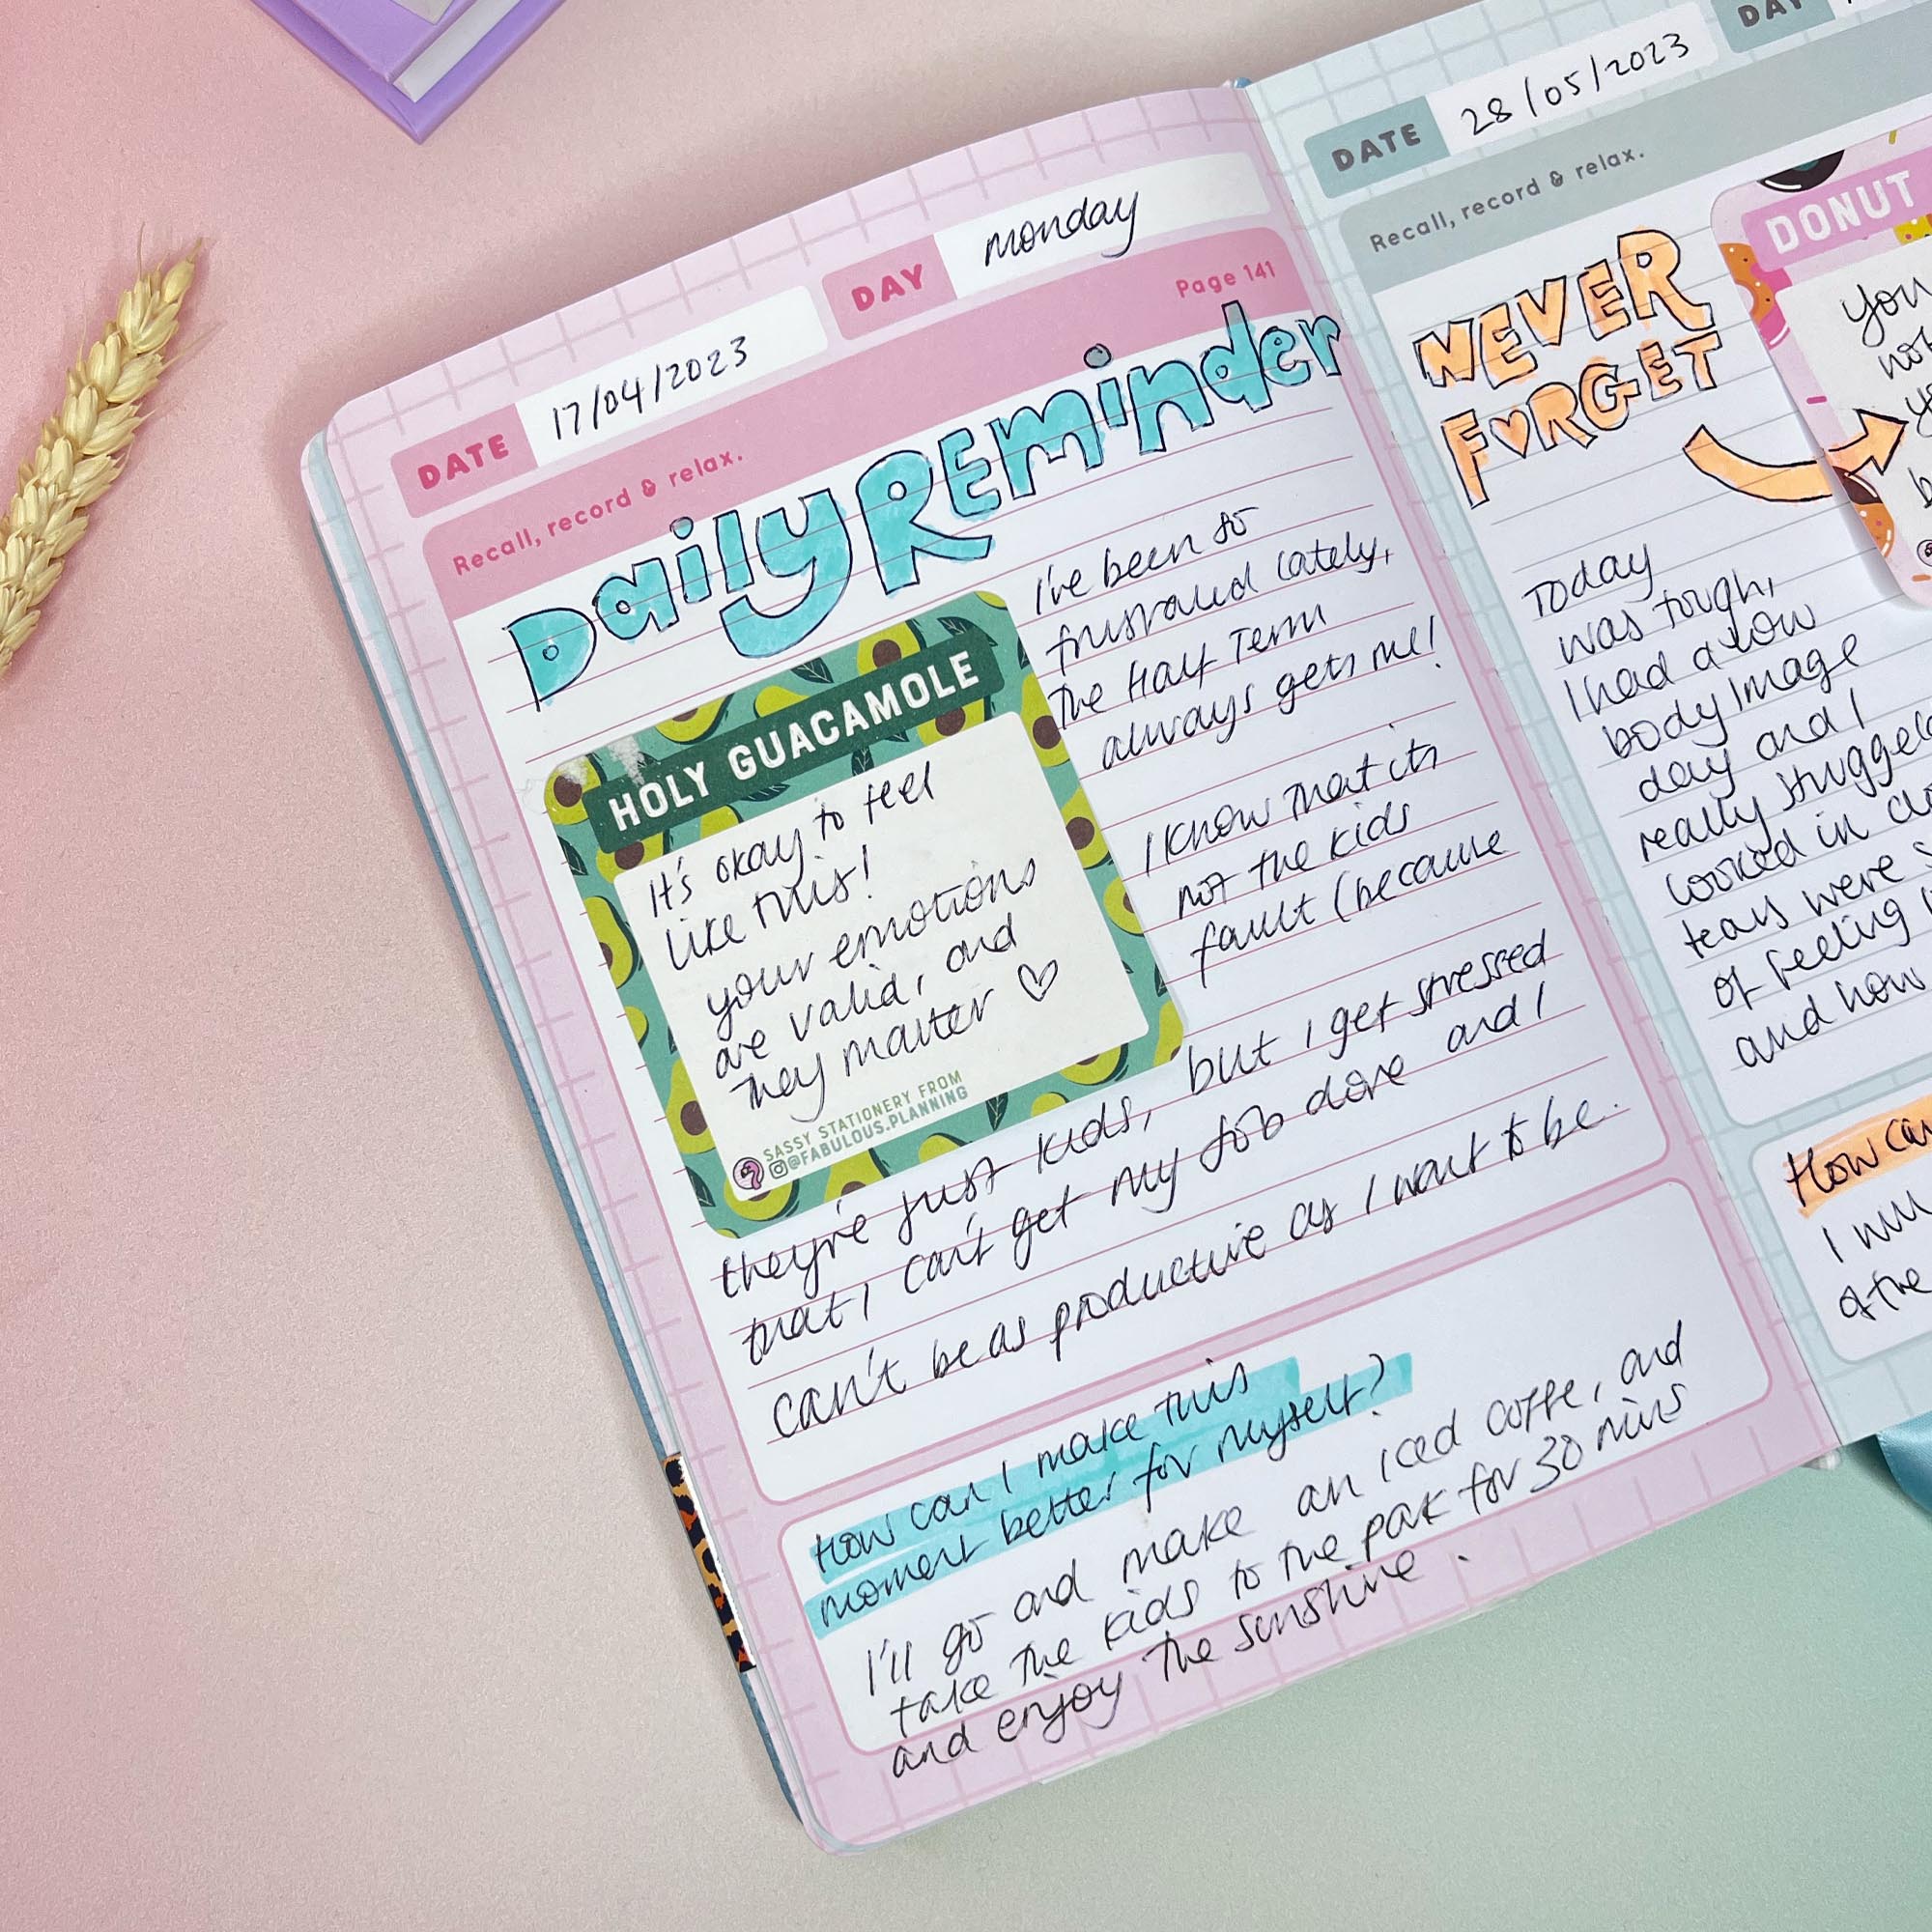 DATE 17/04/2023
DAY monday
Recall, record & relax.
Page 141
Daily Reminder
HOLY GUACAMOLE
It's okay to feel
like this!
your emotions
are valid, and
they matter
SASSY STATIONERY FROM
@FABULOUS.PLANNING
I've been so
frustrated lately,
The Half Term
always gets me!
I know that its
not the kids
fault (because
they're just kids, but I get stressed
that I can't get my job done and I
can't be as productive as I want to be.
How can I make this
moment better for myself?
I'll go and make an iced coffe, and
take the kids to the park for 30 mins
and enjoy the sunshine.
DATE 28/05/2023
DAY
Recall, record & relax.
NEVER
FORGET
DONUT
you
Today
was tough,
I had a low
body image
day and I
really
looked in
tears were
of feeling
and how
How can
I will